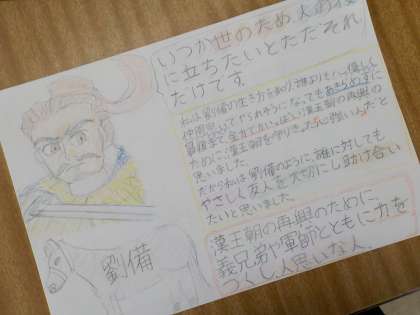 いつか世のため、人の役
に立ちたいとただそれ
だけです
私は劉備の生き方を知り、誰よりも優しく
仲間思いでやられそうになってもあきらめずに
最後まで
ために漢王朝を守りきった心強い人だと
思いました。
だから私は劉備のように、誰に対しても
やさしく友人を大切にし助け合い
たいと思いました
漢王朝の再興のために、
義兄弟や軍師とともに力を
つくし人思いな人
劉備